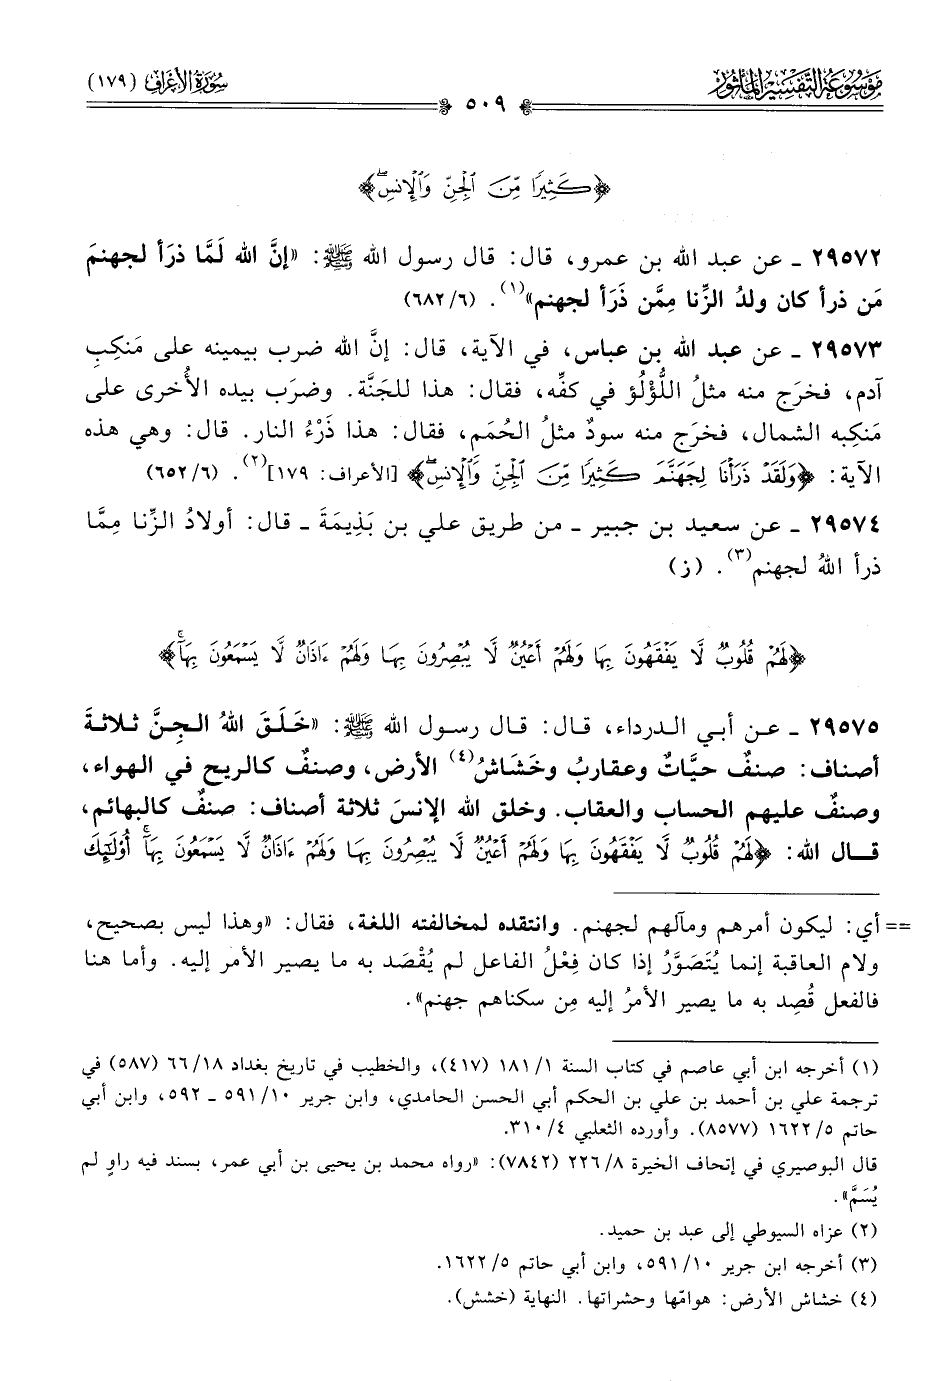 مَوْسُوعَة التَّفْسِير المَأْثُور
سُورَةُ الأَعْرَافِ (١٧٩)
٥٠٩
﴿كَثِيرًا مِّنَ ٱلْجِنِّ وَٱلْإِنسِ ۖ﴾
٢٩٥٧٢ ـ عن عبد الله بن عمرو، قال: قال رسول الله ﷺ: «إنَّ الله لَمَّا ذرَأ لجهنمَ
مَن ذرأ كان ولدُ الزِّنا مِمَّن ذَرَأ لجهنم»(١). (٦/ ٦٨٢)
٢٩٥٧٣ ـ عن عبد الله بن عباس، في الآية، قال: إنَّ الله ضرب بيمينه على مَنكِبِ
آدم، فخرَج منه مثلُ اللُّؤْلُؤ في كفِّه، فقال: هذا للجَنَّة. وضرَب بيده الأُخرى على
مَنكِبه الشمال، فخرَج منه سودٌ مثلُ الحُمَم، فقال: هذا ذَرْءُ النار. قال: وهي هذه
الآية: ﴿وَلَقَدْ ذَرَأْنَا لِجَهَنَّمَ كَثِيرًا مِّنَ ٱلْجِنِّ وَٱلْإِنسِ ۖ﴾ [الأعراف: ١٧٩](٢). (٦/ ٦٥٢)
٢٩٥٧٤ ـ عن سعيد بن جبير ـ من طريق علي بن بَذِيمَةَ ـ قال: أولادُ الزِّنا مِمَّا
ذرأ اللهُ لجهنم(٣). (ز)
﴿لَهُمْ قُلُوبٌ لَّا يَفْقَهُونَ بِهَا وَلَهُمْ أَعْيُنٌ لَّا يُبْصِرُونَ بِهَا وَلَهُمْ ءَاذَانٌ لَّا يَسْمَعُونَ بِهَآ ۚ﴾
٢٩٥٧٥ ـ عن أبي الدرداء، قال: قال رسول الله ﷺ: «خَلَقَ اللهُ الجِنَّ ثلاثةَ
أصناف: صنفٌ حيَّاتٌ وعقاربُ وخَشَاشُ(٤) الأرض، وصنفٌ كالريح في الهواء،
وصنفٌ عليهم الحساب والعقاب. وخلق الله الإنسَ ثلاثة أصناف: صنفٌ كالبهائم،
قال الله: ﴿لَهُمْ قُلُوبٌ لَّا يَفْقَهُونَ بِهَا وَلَهُمْ أَعْيُنٌ لَّا يُبْصِرُونَ بِهَا وَلَهُمْ ءَاذَانٌ لَّا يَسْمَعُونَ بِهَآ ۚ أُوْلَـٰٓئِكَ
== أي: ليكون أمرهم ومآلهم لجهنم. وانتقده لمخالفته اللغة، فقال: «وهذا ليس بصحيح،
ولام العاقبة إنما يُتَصَوَّرُ إذا كان فِعْلُ الفاعل لم يُقْصَد به ما يصير الأمر إليه. وأما هنا
فالفعل قُصِد به ما يصير الأمرُ إليه مِن سكناهم جهنم».
(١) أخرجه ابن أبي عاصم في كتاب السنة ١/ ١٨١ (٤١٧)، والخطيب في تاريخ بغداد ١٨/ ٦٦ (٥٨٧) في
ترجمة علي بن أحمد بن علي بن الحكم أبي الحسن الحامدي، وابن جرير ١٠/ ٥٩١ ـ ٥٩٢، وابن أبي
حاتم ٥/ ١٦٢٢ (٨٥٧٧). وأورده الثعلبي ٤/ ٣١٠.
قال البوصيري في إتحاف الخيرة ٨/ ٢٢٦ (٧٨٤٢): «رواه محمد بن يحيى بن أبي عمر، بسند فيه راوٍ لم
يُسَمَّ».
(٢) عزاه السيوطي إلى عبد بن حميد.
(٣) أخرجه ابن جرير ١٠/ ٥٩١، وابن أبي حاتم ٥/ ١٦٢٢.
(٤) خشاش الأرض: هوامّها وحشراتها. النهاية (خشش).